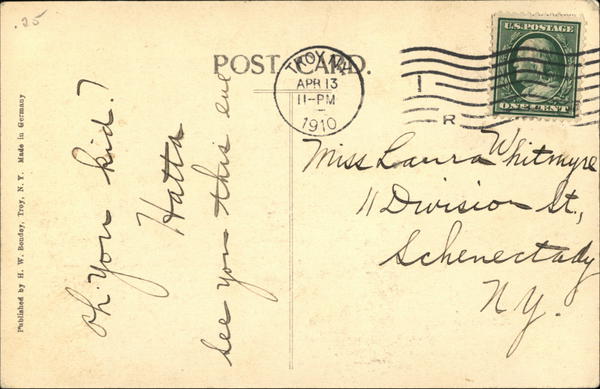 .25
POST CARD.
TROY N.Y.
APR 13
11-PM
1910
1
R
U.S. POSTAGE
ONE CENT
Oh You kid.7
Hatta
see you this eve
Miss Laura Whitmyre
11 Division St.,
Schenectady
N.Y.
Published by H. W. Boudey, Troy, N. Y. Made in Germany